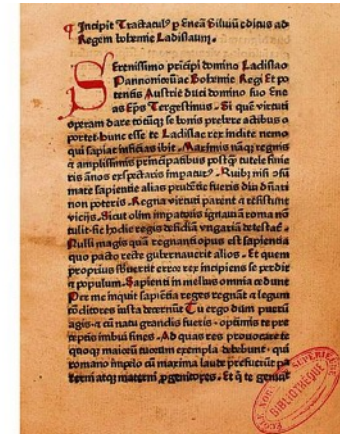 ¶ Incipit Tractatul⁹ ꝑ Eneā Siluiū editus ad
Regem bohemie Ladislaum.
Serenissimo pricipi domino Ladislao
Pannonicū ac Bohemie Regi Et po
tentis Austrie duci domino suo Ene
as Ep̄s Tergestinus. Si quē virtuti
operam dare totūqȝ se bonis prebere actibus o
portet hunc esse te Ladislae rex indite nemo
qui sapiat inficias ibit. Maximis nāqȝ regnis
et amplissimis principatibus postqȝ tutele finie
ris ānos exspectaris
mate sapientie alias prudētie fueris diu dn̄ari
non poteris. Regna virtuti parent et resistunt
vicijs. Sicut olim impatoris ignauiā roma nō
tulit sic hodie regis desidiā vngaria detestaē.
Nulli magis quā regnanti opus est sapientia
quo pacto recte gubernauerit alios. Et quem
proprius error rex incipiens se perdit
et populum. Sapienti in melius omnia cedunt
Per me inquit sapiētia reges regnāt et legum
cōditores iusta decernūt Tu ergo dum puerū
agis. et cū natu grandis fueris. optimis te pre
ceptis imbui fines. Ad quas res prouocare te
quoqȝ maioū tuorum exempla debebunt. qui
romano impio cū maxima laude prefuerūt pa
terni atqȝ materni ꝓgenitores. Et q̄ te genuit
ÉCOLE NORMALE SUPÉRIEURE
BIBLIOTHÈQUE